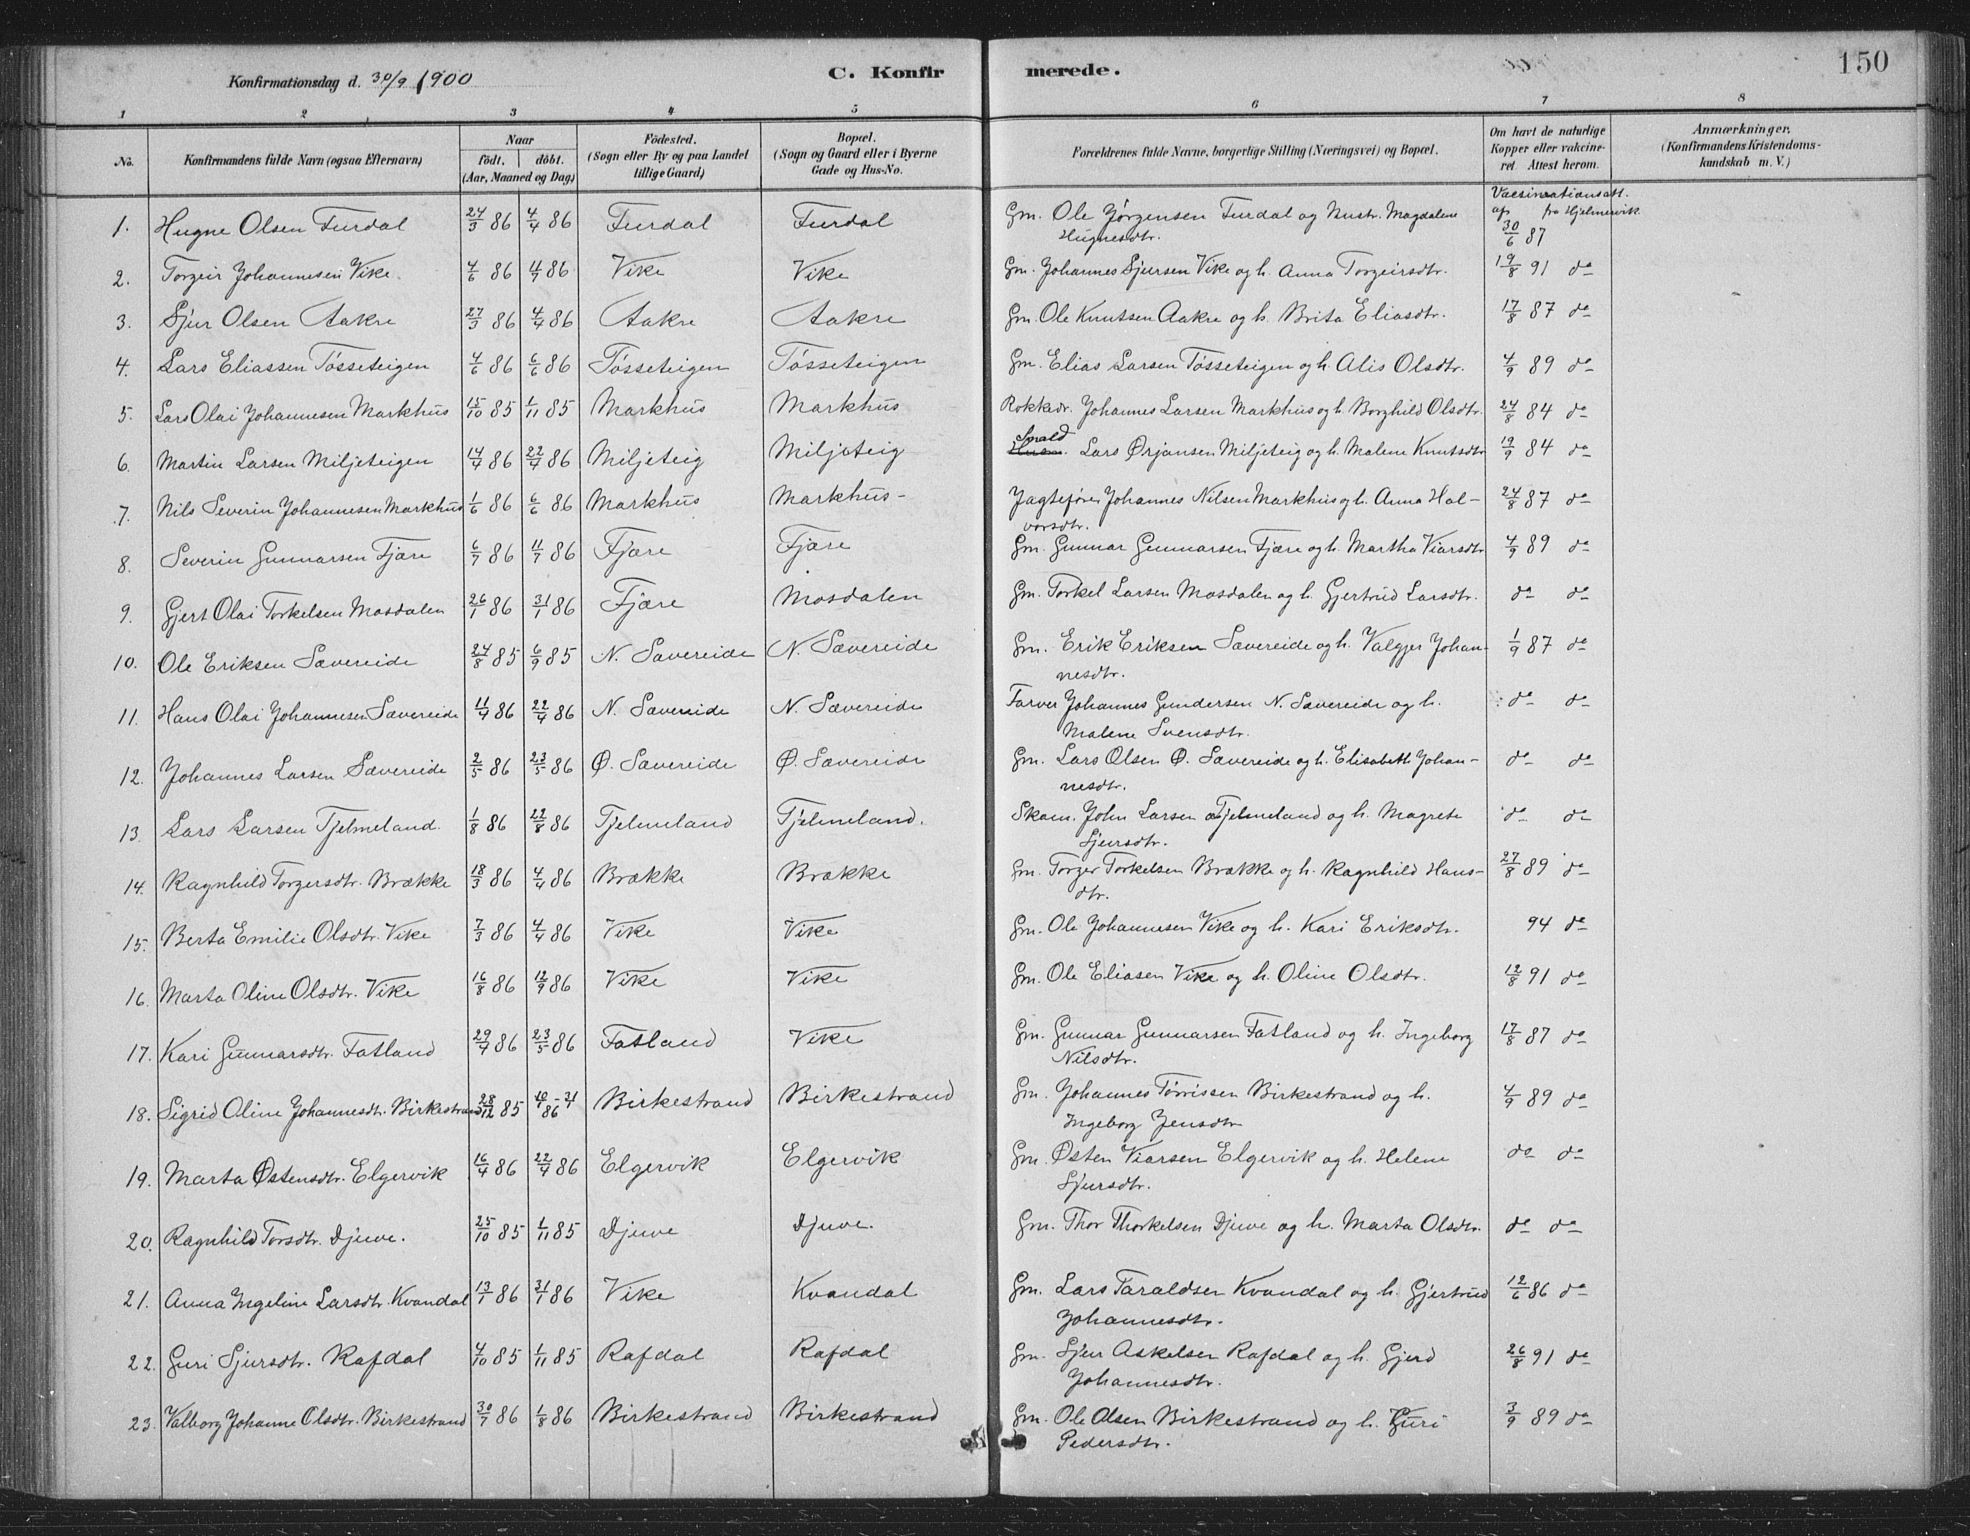 Konfirmationsdag d. 30/9 1900 C. Konfirmerede. 150
1 2 3 4 5 6 7 8
No. Konfirmandens fulde Navn (ogsaa Efternavn) Naar födt. döbt. (Aar, Maaned og Dag) Födested. (Sogn eller By og paa Landet tillige Gaard) Bopæl. (Sogn og Gaard eller i Byerne Gade og Hus-No. Forældrenes fulde Navne, borgerlige Stilling (Næringsvei) og Bopæl. Om havt de naturlige Kopper eller vakcineret Attest herom. Anmærkninger. (Konfirmandens Kristendomskundskab m. V.)
Vaccinationsatt. af fra Hjelmervik
1. Hugne Olsen Furdal 24/3 86 4/4 86 Furdal Furdal Gm. Ole Jørgensen Furdal og Hustr. Magdalene Hugnesdtr. 30/6 87
2. Torgeir Johannesen Vike. 4/6 86 11/7 86 Vike Vike Gm. Johannes Sjursen Vike og h. Anna Torgeirsdtr. 19/8 91 do
3. Sjur Olsen Aakre 27/3 86 4/4 86 Aakre Aakre Gm. Ole Knutsen Aakre og h. Brita Eliasdtr. 17/8 87 do
4. Lars Eliassen Tøsseteigen 4/6 86 6/6 86 Tøsseteigen Tøsseteigen Gm. Elias Larsen Tøsseteigen og h. Alis Olsdtr. 4/9 89 do
5. Lars Olai Johannesen Markhus 15/10 85 1/11 85 Markhus Markhus Rokkedr. Johannes Larsen Markhus og h. Borghild Olsdtr. 24/8 84 do
6. Martin Larsen Miljeteigen 14/4 86 22/4 86 Miljeteig Miljeteig Lars Ørjansen Miljeteig og h. Malene Knutsdtr 19/9 84 do
7. Nils Severin Johannesen Markhus 1/6 86 6/6 86 Markhus Markhus- Jagtefører Johannes Nilsen Markhus og h. Anna Halvorsdtr. 24/8 87 do
8. Severin Gunnarsen Fjære 6/7 86 11/7 86 Fjære Fjære Gm. Gunnar Gunnarsen Fjære og h. Martha Viarsdtr 4/9 89 do
9. Gjert Olai Torkelsen Mosdalen 26/1 86 31/1 86 Fjære Mosdalen Gm. Torkel Larsen Mosdalen og h. Gjertrud Larsdtr. do do
10. Ole Eriksen Sævereide 24/8 85 6/9 85 N. Sævereide N. Sævereide Gm. Erik Eriksen Sævereide og h. Valgjer Johannesdtr. 1/9 87 do
11. Hans Olai Johannesen Sævereide 11/4 86 22/4 86 N. Sævereide N. Sævereide Farver Johannes Gundersen N. Sævereide og h. Malene Svensdtr. do do
12. Johannes Larsen Sævereide 2/5 86 23/5 86 Ø. Sævereide Ø. Sævereide Gm. Lars Olsen Ø. Sævereide og h. Elisabeth Johannesdtr. do do
13 Lars Larsen Tjelmeland. 1/8 86 22/8 86 Tjelmeland Tjelmeland. Skom. John Larsen Tjelmeland og h. Magrete Sjursdtr. do do
14. Ragnhild Torgersdtr. Brække 18/3 86 4/4 86 Brække Brække Gm. Torger Torkelsen Brække og h. Ragnhild Hansdtr. 27/8 89 do
15. Berta Emilie Olsdtr. Vike 7/3 86 4/4 86 Vike Vike Gm. Ole Johannesen Vike og h. Kari Eriksdtr. 94 do
16. Marta Oline Olsdtr. Vike 16/8 86 12/9 86 Vike Vike Gm. Ole Eliasen Vike og h. Oline Olsdtr. 12/8 91 do
17. Kari Gunnarsdtr. Fatland 29/4 86 23/5 86 Fatland Vike Gm. Gunnar Gunnarsen Fatland og h. Ingeborg Nilsdtr. 17/8 87 do
18. Sigrid Oline Johannesdtr. Birkestrand 28/12 85 86 Birkestrand Birkestrand Gm. Johannes Tørrissen Birkestrand og h. Ingeborg Jensdtr 4/9 89 do
19. Marta Østensdtr. Elgervik 16/4 86 22/4 86 Elgervik Elgervik Gm. Østen Viarsen Elgervik og h. Helene Sjursdtr. do do
20. Ragnhild Torsdtr. Djuve. 25/10 85 1/11 85 Djuve Djuve. Gm. Thor Thorkelsen Djuve og h. Marta Olsdtr. do do
21. Anna Ingeline Larsdtr. Kvandal 13/1 86 31/1 86 Vike Kvandal Gm. Lars Taraldsen Kvandal og h. Gjertrud Johannesdtr. 12/6 86 do
22. Guri Sjursdtr. Rafdal 4/10 85 1/11 85 Rafdal Rafdal Gm. Sjur Askelsen Rafdal og h. Gjerd Johannesdtr. 26/8 91 do
23. Valborg Johanne Olsdtr. Birkestrand 30/7 86 1/8 86 Birkestrand Birkestrand Gm. Ole Olsen Birkestrand og h. Guri Pedersdtr. 3/9 89 do